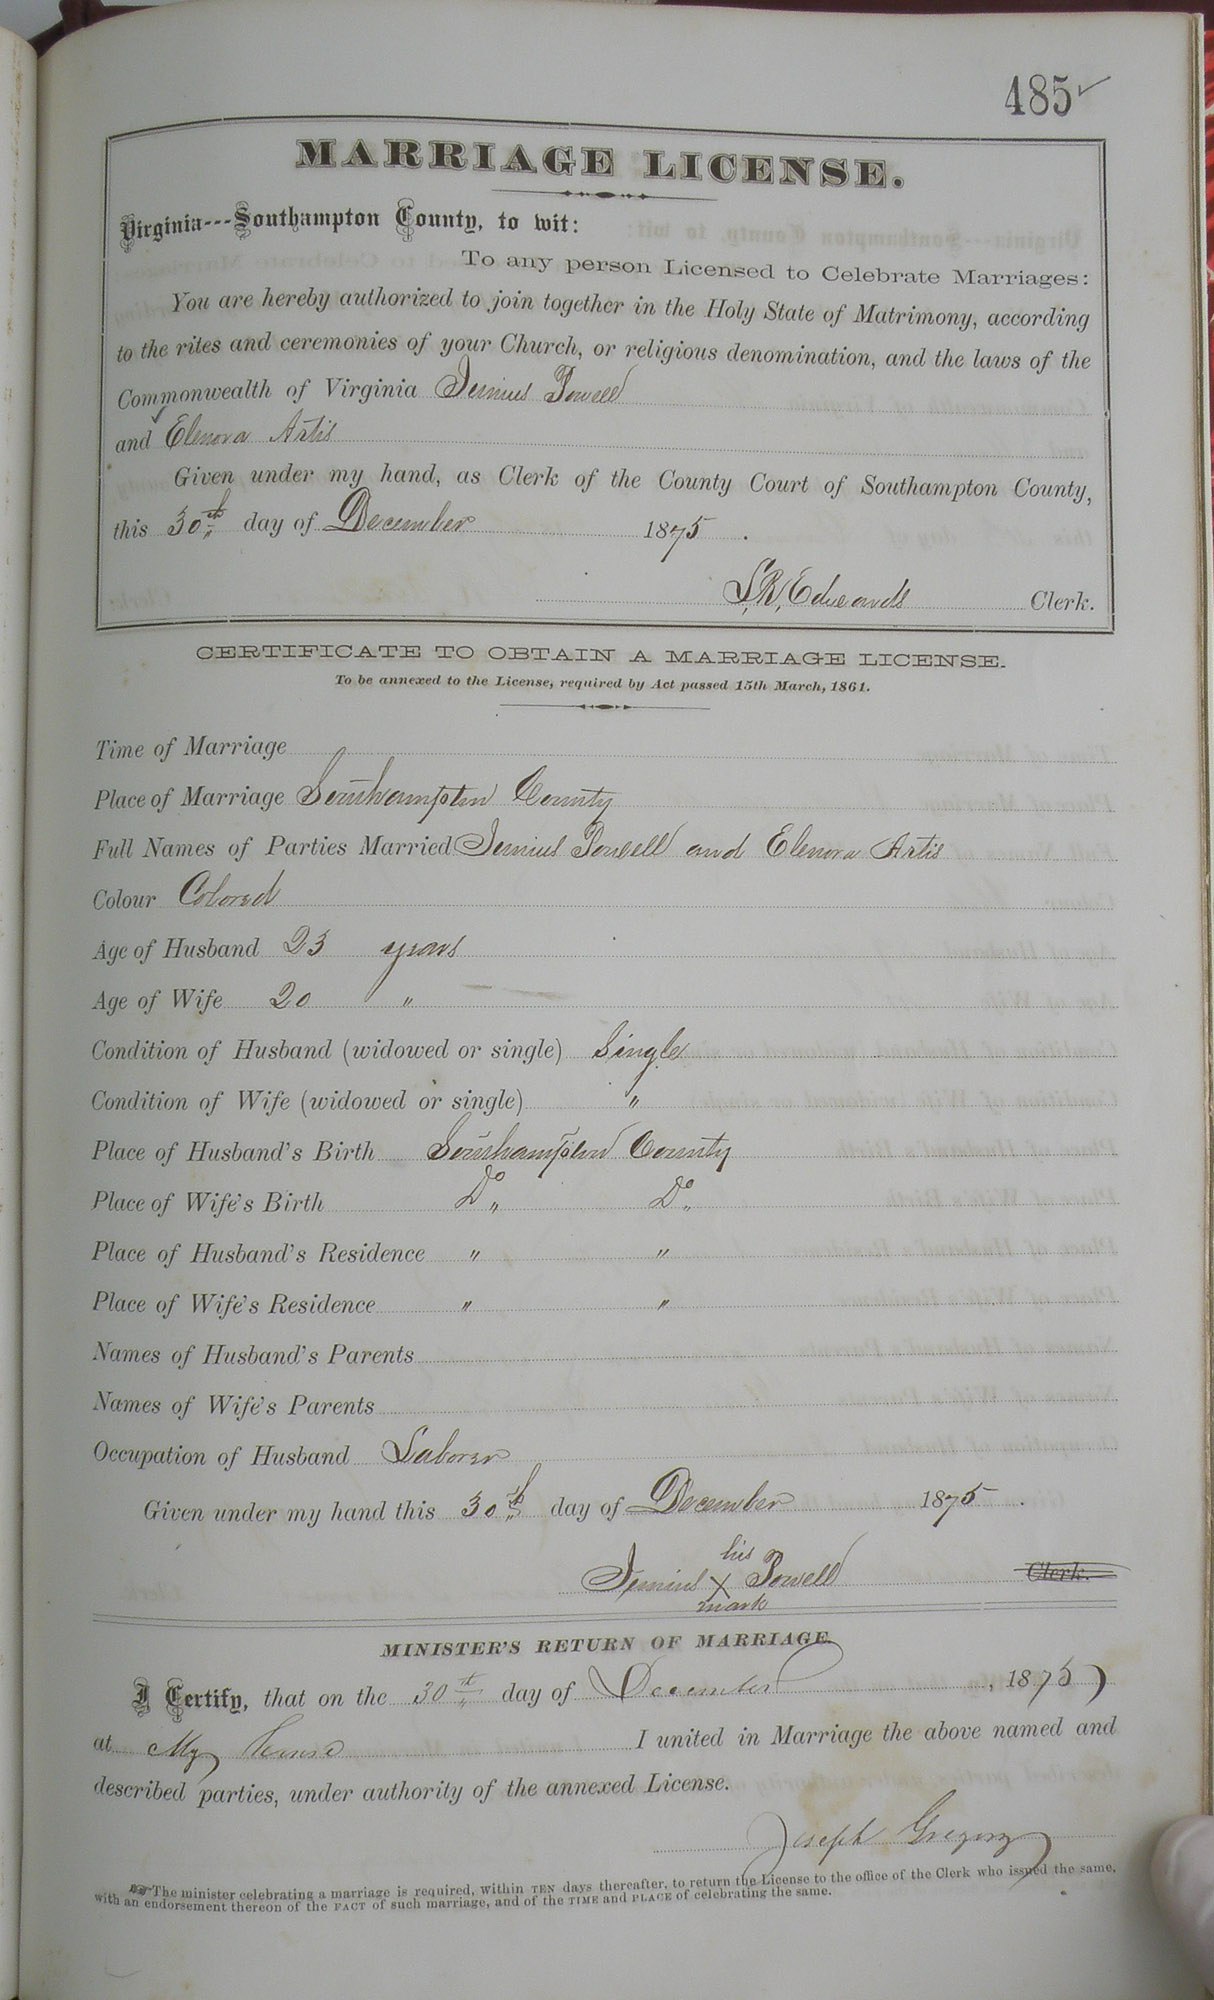 485 ✓
MARRIAGE LICENSE.
Virginia---Southampton County, to wit:
To any person Licensed to Celebrate Marriages:
You are hereby authorized to join together in the Holy State of Matrimony, according
to the rites and ceremonies of your Church, or religious denomination, and the laws of the
Commonwealth of Virginia Jemius Powell
and Elenora Artis
Given under my hand, as Clerk of the County Court of Southampton County,
this 30th day of December 1875.
L.R. Edwards Clerk.
CERTIFICATE TO OBTAIN A MARRIAGE LICENSE.
To be annexed to the License, required by Act passed 15th March, 1861.
Time of Marriage
Place of Marriage Southampton County
Full Names of Parties Married Jemius Powell and Elenora Artis
Colour Colored
Age of Husband 23 years
Age of Wife 20 "
Condition of Husband (widowed or single) Single
Condition of Wife (widowed or single) "
Place of Husband's Birth Southampton County
Place of Wife's Birth Do " Do "
Place of Husband's Residence " "
Place of Wife's Residence " "
Names of Husband's Parents
Names of Wife's Parents
Occupation of Husband Laborer
Given under my hand this 30th day of December 1875.
his
Jemius X Powell Clerk.
mark
MINISTER'S RETURN OF MARRIAGE.
I Certify, that on the 30th day of December, 1875
at My house I united in Marriage the above named and
described parties, under authority of the annexed License.
Joseph Gregory
The minister celebrating a marriage is required, within TEN days thereafter, to return the License to the office of the Clerk who issued the same,
with an endorsement thereon of the FACT of such marriage, and of the TIME and PLACE of celebrating the same.